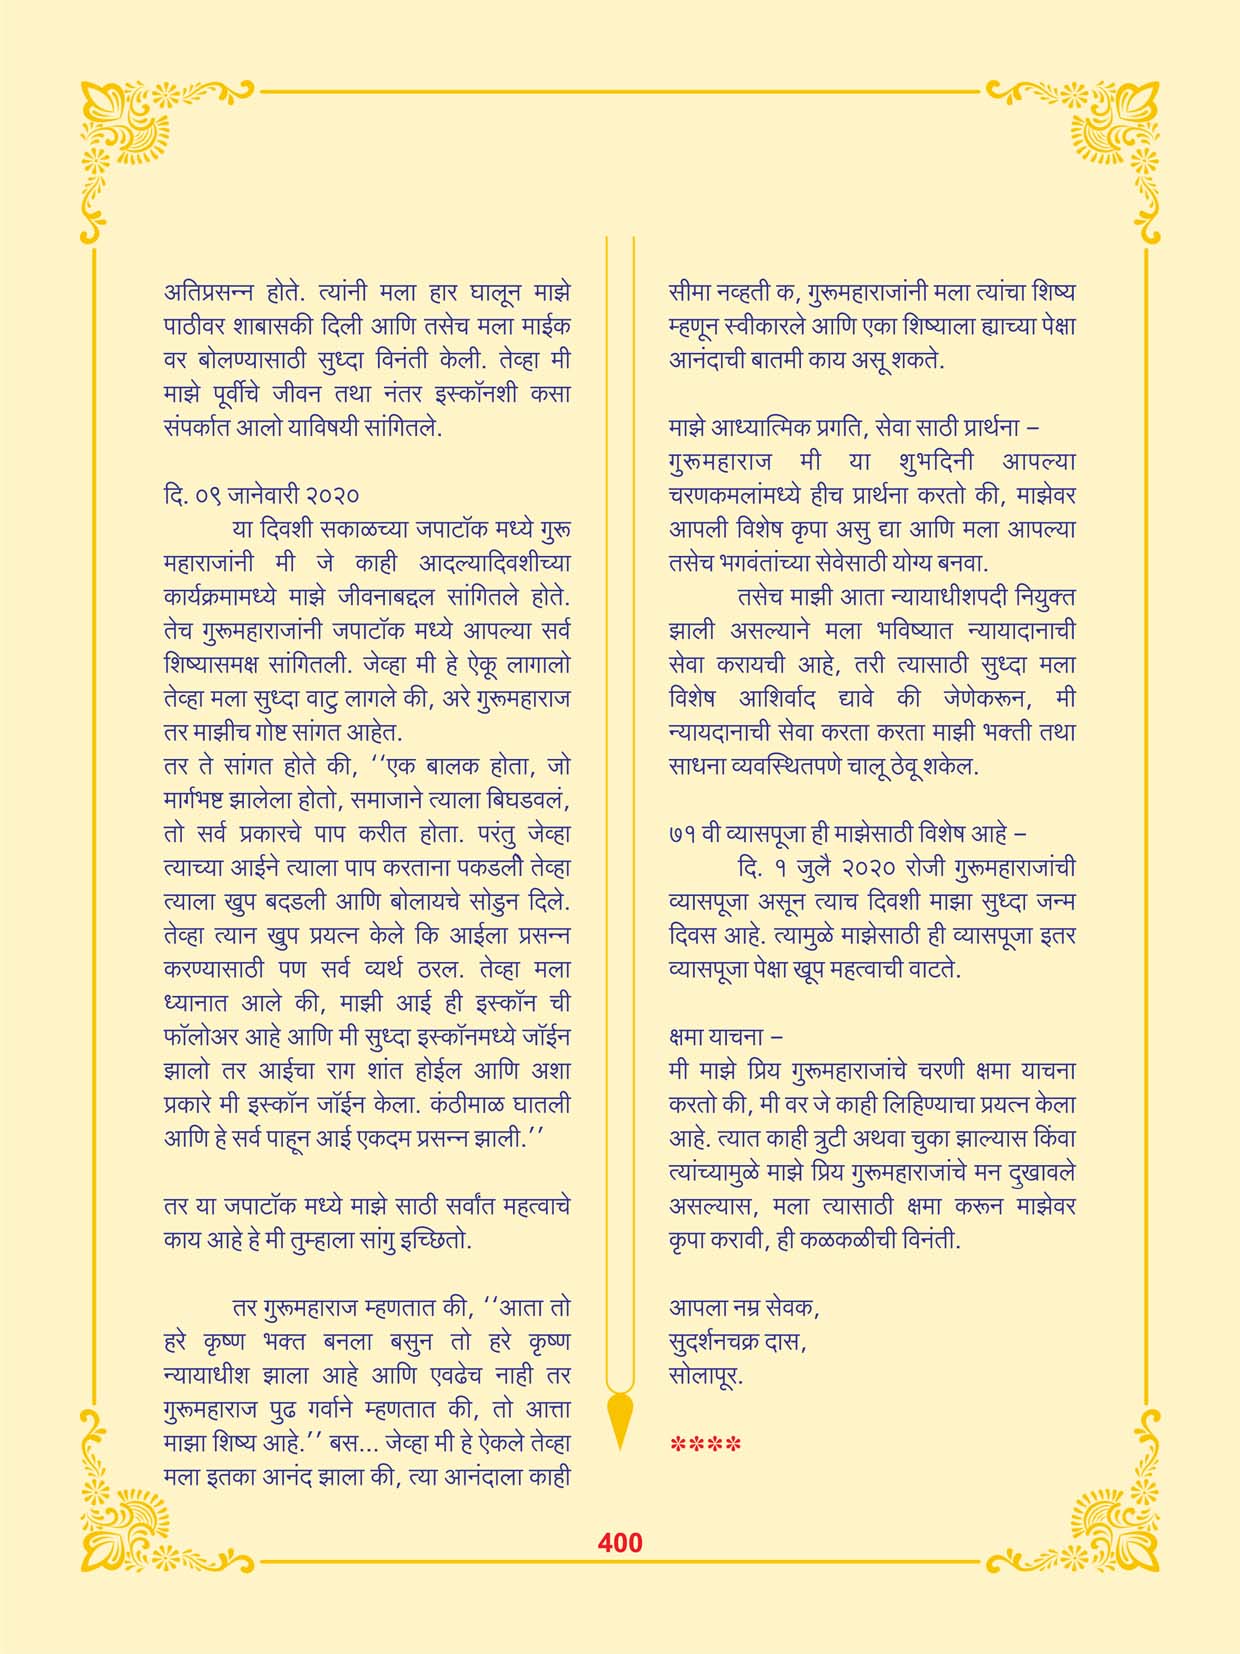 अतिप्रसन्न होते. त्यांनी मला हार घालून माझे
पाठीवर शाबासकी दिली आणि तसेच मला माईक
वर बोलण्यासाठी सुध्दा विनंती केली. तेव्हा मी
माझे पूर्वीचे जीवन तथा नंतर इस्कॉनशी कसा
संपर्कात आलो याविषयी सांगितले.
दि. ०९ जानेवारी २०२०
या दिवशी सकाळच्या जपाटॉक मध्ये गुरू
महाराजांनी मी जे काही आदल्यादिवशीच्या
कार्यक्रमामध्ये माझे जीवनाबद्दल सांगितले होते.
तेच गुरूमहाराजांनी जपाटॉक मध्ये आपल्या सर्व
शिष्यासमक्ष सांगितली. जेव्हा मी हे ऐकू लागालो
तेव्हा मला सुध्दा वाटु लागले की, अरे गुरूमहाराज
तर माझीच गोष्ट सांगत आहेत.
तर ते सांगत होते की, ‘‘एक बालक होता, जो
मार्गभष्ट झालेला होतो, समाजाने त्याला बिघडवलं,
तो सर्व प्रकारचे पाप करीत होता. परंतु जेव्हा
त्याच्या आईने त्याला पाप करताना पकडलीे तेव्हा
त्याला खुप बदडली आणि बोलायचे सोडुन दिले.
तेव्हा त्यान खुप प्रयत्न केले कि आईला प्रसन्न
करण्यासाठी पण सर्व व्यर्थ ठरल. तेव्हा मला
ध्यानात आले की, माझी आई ही इस्कॉन ची
फॉलोअर आहे आणि मी सुध्दा इस्कॉनमध्ये जॉईन
झालो तर आईचा राग शांत होईल आणि अशा
प्रकारे मी इस्कॉन जॉईन केला. कंठीमाळ घातली
आणि हे सर्व पाहून आई एकदम प्रसन्न झाली.’’
तर या जपाटॉक मध्ये माझे साठी सर्वांत महत्वाचे
काय आहे हे मी तुम्हाला सांगु इच्छितो.
तर गुरूमहाराज म्हणतात की, ‘‘आता तो
हरे कृष्ण भक्त बनला बसुन तो हरे कृष्ण
न्यायाधीश झाला आहे आणि एवढेच नाही तर
गुरूमहाराज पुढ गर्वाने म्हणतात की, तो आत्ता
माझा शिष्य आहे.’’ बस... जेव्हा मी हे ऐकले तेव्हा
मला इतका आनंद झाला की, त्या आनंदाला काही
सीमा नव्हती क, गुरूमहाराजांनी मला त्यांचा शिष्य
म्हणून स्वीकारले आणि एका शिष्याला ह्याच्या पेक्षा
आनंदाची बातमी काय असू शकते.
माझे आध्यात्मिक प्रगति, सेवा साठी प्रार्थना –
गुरूमहाराज मी या शुभदिनी आपल्या
चरणकमलांमध्ये हीच प्रार्थना करतो की, माझेवर
आपली विशेष कृपा असु द्या आणि मला आपल्या
तसेच भगवंतांच्या सेवेसाठी योग्य बनवा.
तसेच माझी आता न्यायाधीशपदी नियुक्त
झाली असल्याने मला भविष्यात न्यायादानाची
सेवा करायची आहे, तरी त्यासाठी सुध्दा मला
विशेष आशिर्वाद द्यावे की जेणेकरून, मी
न्यायदानाची सेवा करता करता माझी भक्ती तथा
साधना व्यवस्थितपणे चालू ठेवू शकेल.
७१ वी व्यासपूजा ही माझेसाठी विशेष आहे –
दि. १ जुलै २०२० रोजी गुरूमहाराजांची
व्यासपूजा असून त्याच दिवशी माझा सुध्दा जन्म
दिवस आहे. त्यामुळे माझेसाठी ही व्यासपूजा इतर
व्यासपूजा पेक्षा खूप महत्वाची वाटते.
क्षमा याचना –
मी माझे प्रिय गुरूमहाराजांचे चरणी क्षमा याचना
करतो की, मी वर जे काही लिहिण्याचा प्रयत्न केला
आहे. त्यात काही त्रुटी अथवा चुका झाल्यास किंवा
त्यांच्यामुळे माझे प्रिय गुरूमहाराजांचे मन दुखावले
असल्यास, मला त्यासाठी क्षमा करून माझेवर
कृपा करावी, ही कळकळीची विनंती.
आपला नम्र सेवक,
सुदर्शनचक्र दास,
सोलापूर.
****
400